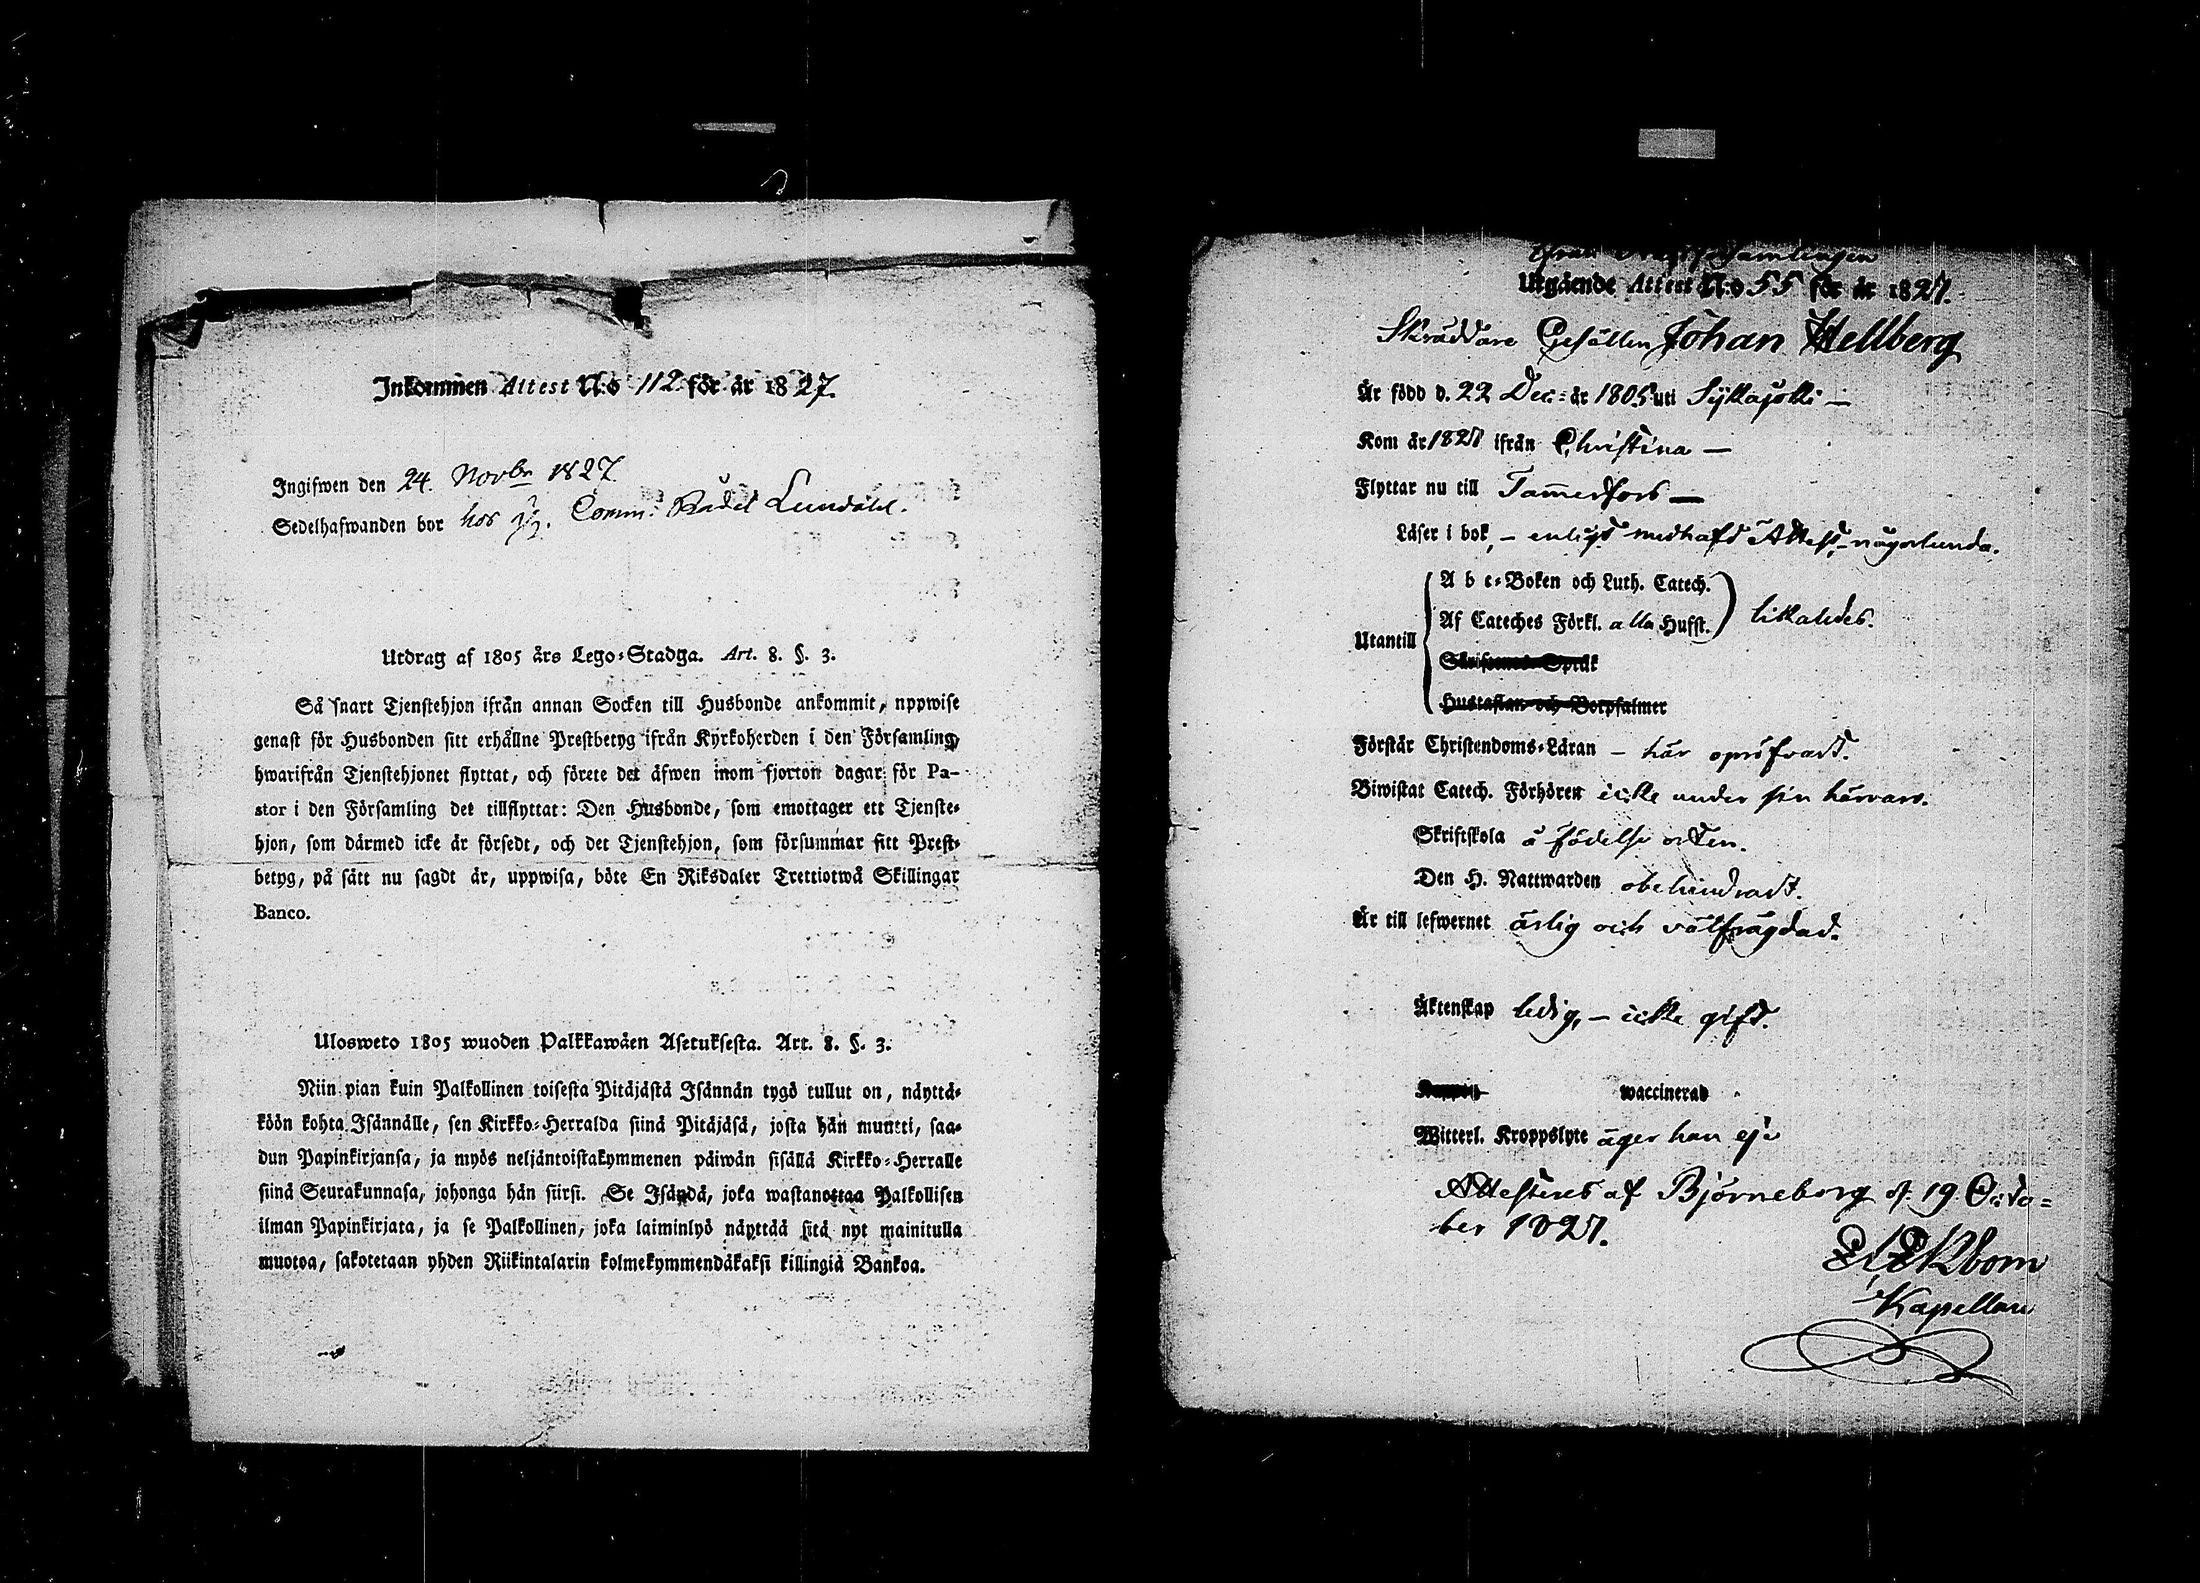 Inkommen Attest N:o 112 för år 1827.
Ingifwen den 24. Novbr 1827
Sedelhafwanden bor hos Comm: Rådet Lundahl.
Utdrag af 1805 års Lego-Stadga. Art. 8. §. 3.
Så snart Tjenstehjon ifrån annan Socken till Husbonde ankommit, nppwise
genast för Husbonden sitt erhållne Prestbetyg ifrån Kyrkoherden i den Församling
hwarifrån Tjenstehjonet flyttat, och förete det äfwen inom fjorton dagar för Pa-
stor i den Församling det tillflyttat: Den Husbonde, som emottager ett Tjenste-
hjon, som därmed icke är försedt, och det Tjenstehjon, som försummar sitt Prest-
betyg, på sätt nu sagdt är, uppwisa, böte En Riksdaler Trettiotwå Skillingar
Banco.
Ulosweto 1805 wuoden Palkkawäen Asetuksesta. Art. 8. §. 3.
Niin pian kuin Palkollinen toisesta Pitäjästä Isännän tygö tullut on, näyttä-
köön kohta Isännälle, sen Kirkko-Herralda siinä Pitäjäsä, josta hän muutti, saa-
dun Papinkirjansa, ja myös neljäntoistakymmenen päiwän sisällä Kirkko-Herralle
siinä Seurakunnasa, johonga hän siirsi. Se Isändä, joka wastanottaa Palkollisen
ilman Papinkirjata, ja se Palkollinen, joka laiminlyö näyttää sitä nyt mainitulla
muotoa, sakotetaan yhden Riikintalarin kolmekymmendäkaksi killingiä Bankoa.
Utgående Attest N:o 55 för år 1827.
Skräddare Gesällen Johan Hellberg
Är född d. 22 Dec: år 1805 uti Sijkajoki
Kom år 1827 ifrån Christina
Flyttar nu till Tammerfors
Läser i bok, enligt medhafd Attest någorlunda.
Utantill
A b c-Boken och Luth. Catech.
Af Cateches Förkl. alla Hufst.
likaledes.
Skriftenes Språk
Hustaflan och Botpsalmer
Förstår Christendoms-Läran här opröfvadt.
Biwistat Catech. Förhören icke under sin härvaro.
Skriftskola å födelse orten.
Den H. Nattwarden obehindradt.
Är till lefwernet ärlig och välfrägdad.
Äktenskap ledig, icke gift.
waccinerad
Witterl. Kroppslyte äger han ej
Attesteras af Björneborg d. 19 Octo=
ber 1827.
Ekbom
Kapellan